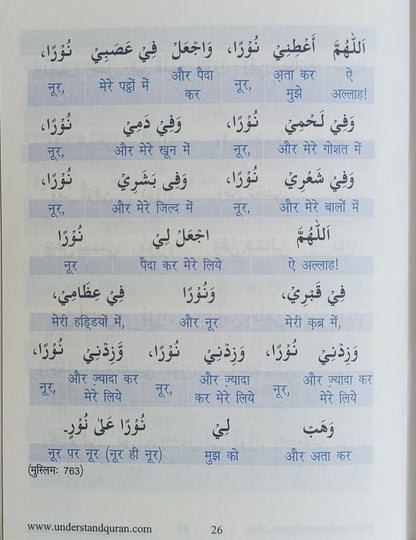 اَللّٰهُمَّ أَعْطِنِيْ نُوْرًا، وَاجْعَلْ فِيْ عَصَبِيْ نُوْرًا،
ऐ अल्लाह! अ़ता कर मुझे नूर, और पैदा कर मेरे पठ्ठों में नूर,
وَفِيْ لَحْمِيْ نُوْرًا، وَفِيْ دَمِيْ نُوْرًا،
और मेरे गोशत में नूर, और मेरे खून में नूर,
وَفِيْ شَعْرِيْ نُوْرًا، وَفِى بَشَرِيْ نُوْرًا،
और मेरे बालों में नूर, और मेरे जिल्द में नूर,
اَللّٰهُمَّ اجْعَلْ لِيْ نُوْرًا
ऐ अल्लाह! पैदा कर मेरे लिये नूर
فِيْ قَبْرِيْ، وَنُوْرًا فِيْ عِظَامِيْ،
मेरी क़ब्र में, और नूर मेरी हड्डियों में,
وَزِدْنِيْ نُوْرًا، وَزِدْنِيْ نُوْرًا، وَّزِدْنِيْ نُوْرًا،
और ज़्यादा कर मेरे लिये नूर, और ज़्यादा कर मेरे लिये नूर, और ज़्यादा कर मेरे लिये नूर,
وَهَبْ لِيْ نُوْرًا عَلٰى نُوْرٍ۔
और अता कर मुझ को नूर पर नूर (नूर ही नूर)
(मुस्लिमः 763)
www.understandquran.com 26